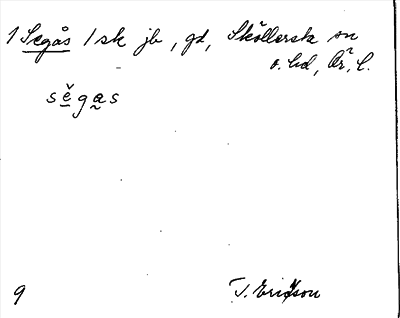 1 Segås 1 sk jb, gd, Skållersta sn
o. hd, Ör. l.
sĕgas
9
T. Ericsson